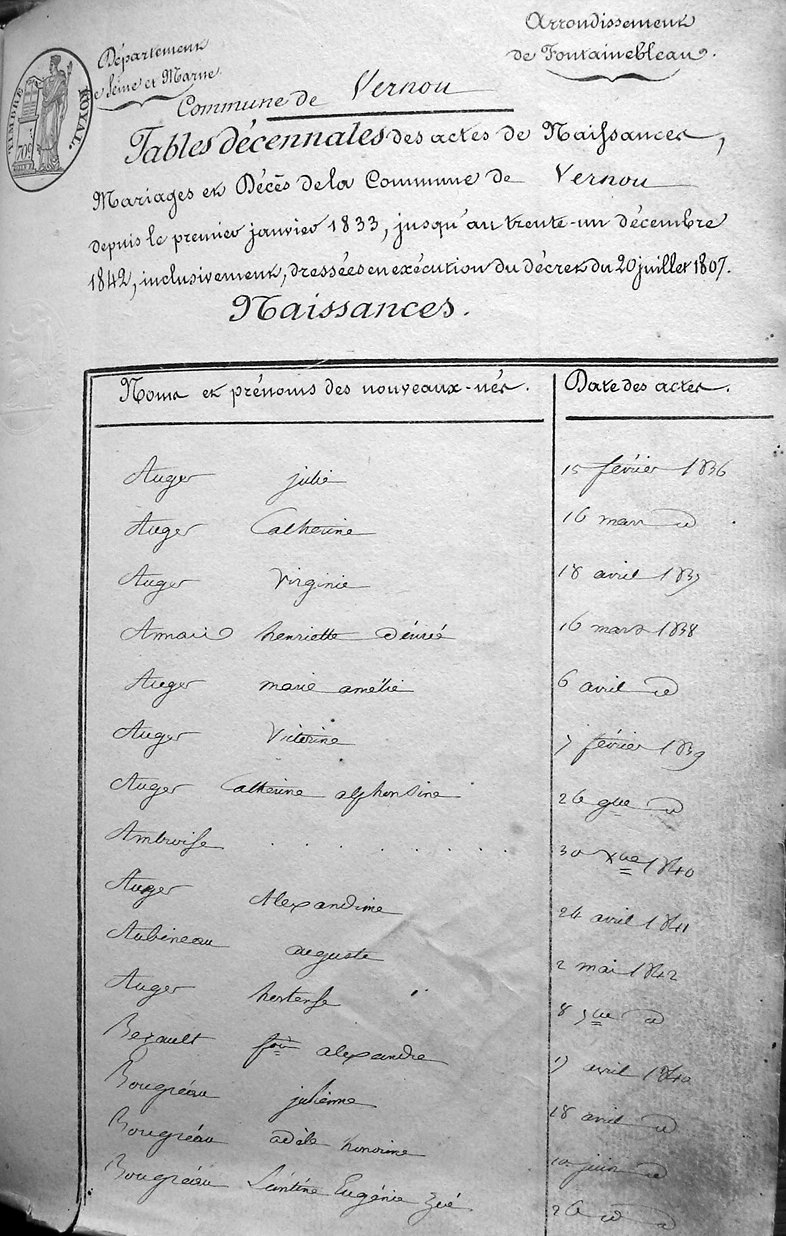 Département
Seine et Marne
Arrondissement
de Fontainebleau.
TIMBRE ROYAL.
Commune de Vernou
Tables décennales des actes de Naissances,
Mariages et Décès de la Commune de Vernou
depuis le premier janvier 1833, jusqu'au trente-un décembre
1842, inclusivement, dressées en exécution du décret du 20 juillet 1807.
Naissances.
Noms et prénoms des nouveaux-nés. Date des actes.
Auger julie 15 février 1836
Auger Catherine 16 mars d
Auger Virginie 18 avril 1837
henriette désirée 16 mars 1838
Auger marie amélie 6 avril d
Auger Victorine 7 février 1839
Auger Catherine alphonsine 26 9bre d
Ambroise . . . . . . . . 30 Xbre 1840
Auger Alexandrine 24 avril 1841
Aubineau auguste 2 mai 1842
Auger hortense 8 d
Bezault fois alexandre avril
Bougréau julienne 18 avril d
Bougréau adèle honorine 10 juin d
Bougréau Eugénie Zoé 26 d d